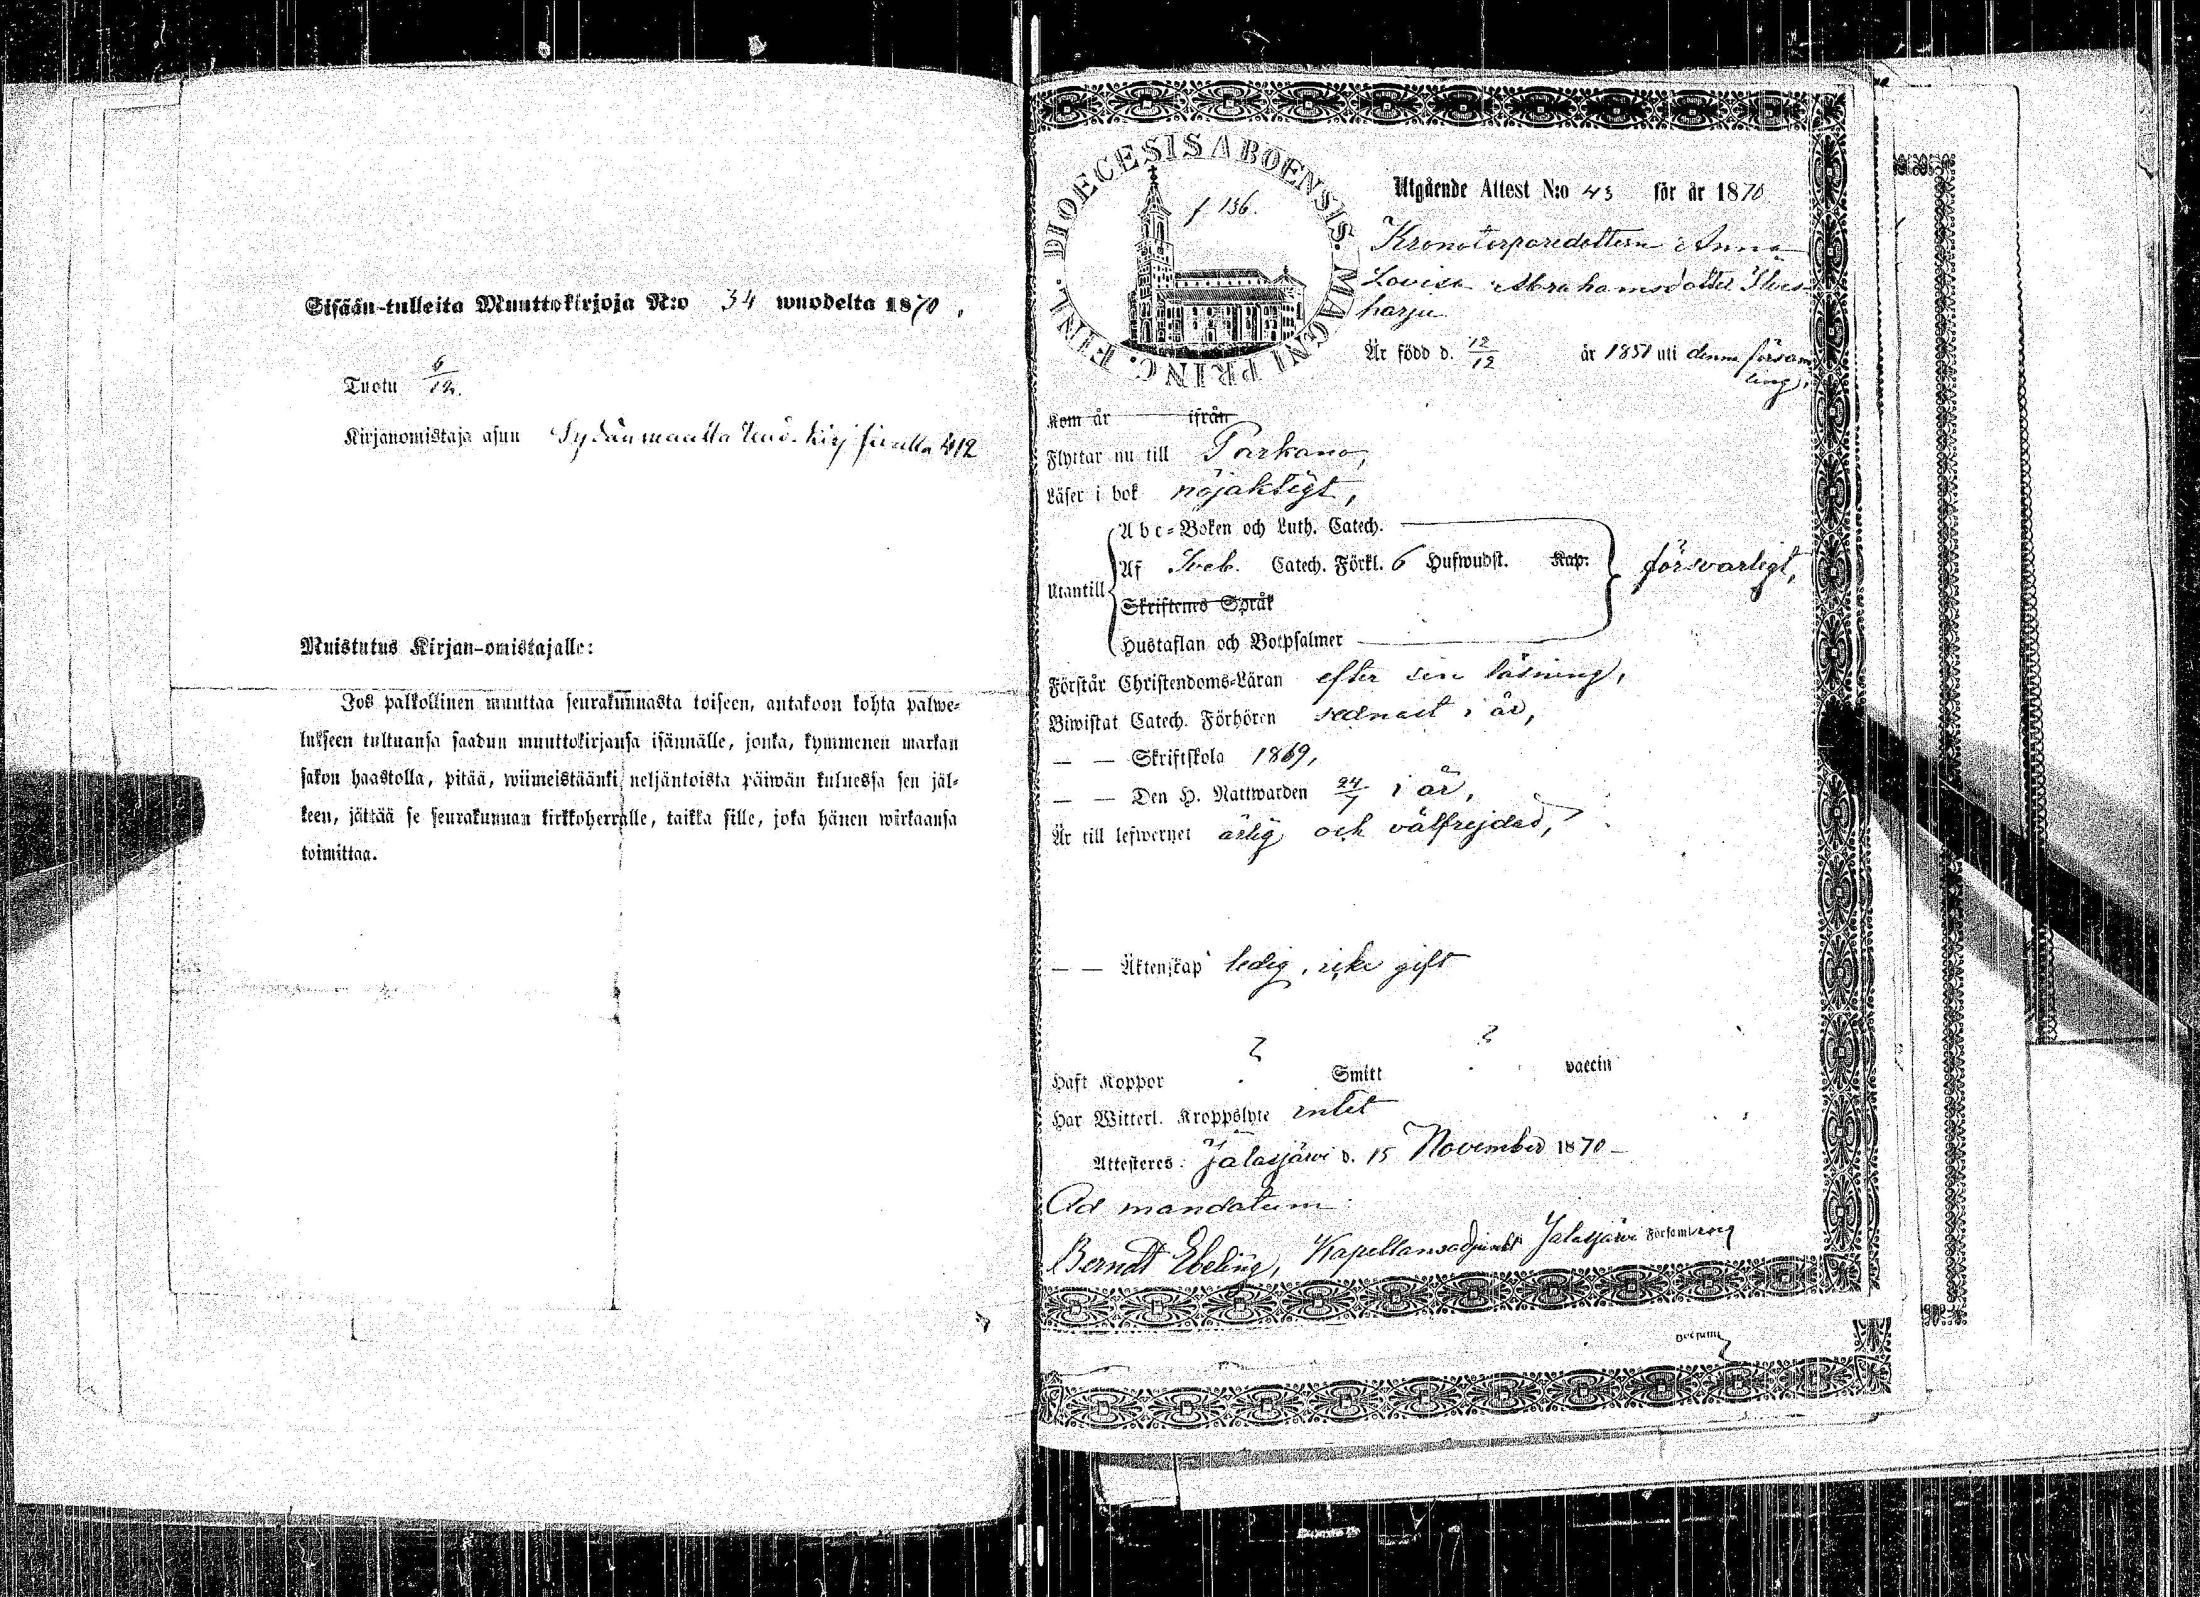 Sisään-tulleita Muuttokirjoja N:o 34 wuodelta 1870.
Tuotu 6/12.
Kirjanomistaja asuu Sydänmaalla kirj sivulla 412
Muistutus Kirjan-omistajalle:
Jos palkollinen muuttaa seurakunnasta toiseen, antakoon kohta palwe-
lukseen tultuansa saadun muuttokirjansa isännälle, jonka, kymmenen markan
sakon haastolla, pitää, wiimeistäänki neljäntoista päiwän kuluessa sen jäl-
keen, jättää se seurakunnan kirkkoherralle, taikka sille, joka hänen wirkaansa
toimittaa.
DIOECESIS ABOENSIS. MAGNI PRINC. FINL.
f 136.
Utgående Attest N:o 43 för år 1870
Kronotorparedottern Anna
Lovisa Abrahamsdotter Ilves
harju
Är född d. 12/12 år 1851 uti denna församling,
Kom år ifrån
Flyttar nu till Parkano,
Läser i bok nöjaktigt,
Utantill
Abc-Boken och Luth. Catech.
Af Sveb. Catech. Förkl. 6 Hufwudst. Kap. försvarligt,
Skriftenes Språk
Hustaflan och Botpsalmer
Förstår Christendoms-Läran efter sin läsning,
Biwistat Catech. Förhören sednast i år,
— — Skriftskola 1869,
— — Den H. Nattwarden 24/7 i år,
Är till lefwernet ärlig och välfrejdad,
— — Äktenskap ledig, icke gift
Haft Koppor ? Smitt ? vaccin
Har Witterl. Kroppslyte intet
Attesteres: Jalasjärvi d. 15 November 1870 —
Ad mandatum:
Berndt Ebeling, Kapellansadjunkt Jalasjärvi Församling